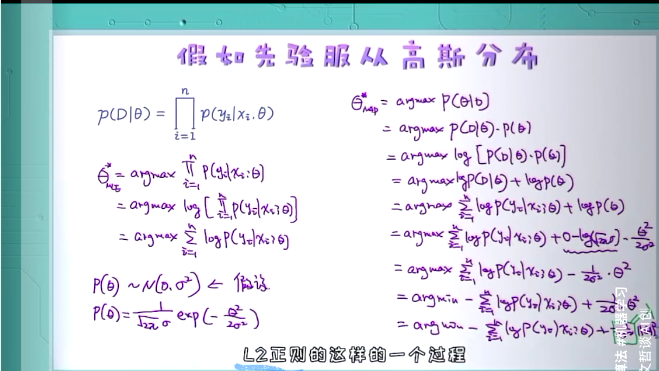 假如先验服从高斯分布
p(D|θ) = ∏_{i=1}^{n} p(y_i|x_i, θ)
θ*_{MLE} = argmax ∏_{i=1}^{n} P(y_i|x_i;θ)
= argmax log[∏_{i=1}^{n} P(y_i|x_i;θ)]
= argmax ∑_{i=1}^{n} log P(y_i|x_i;θ)
P(θ) ~ N(0, σ²) ⇐ 假设
P(θ) = 1/(√2π σ) exp(-θ²/2σ²)
θ*_{MAP} = argmax P(θ|D)
= argmax P(D|θ)·P(θ)
= argmax log[P(D|θ)·P(θ)]
= argmax log P(D|θ) + log P(θ)
= argmax ∑_{i=1}^{n} log P(y_i|x_i;θ) + log P(θ)
= argmax ∑_{i=1}^{n} log P(y_i|x_i;θ) + 0 - log(√2π σ) - θ²/2σ²
= argmax ∑_{i=1}^{n} log P(y_i|x_i;θ) - 1/2σ² · θ²
= argmin - ∑_{i=1}^{n} log P(y_i|x_i;θ) + 1/2σ² θ²
= argmin - ∑_{i=1}^{n} log P(y_i|x_i;θ) +
L2正则的这样的一个过程
算法 #机器学习
文哲谈